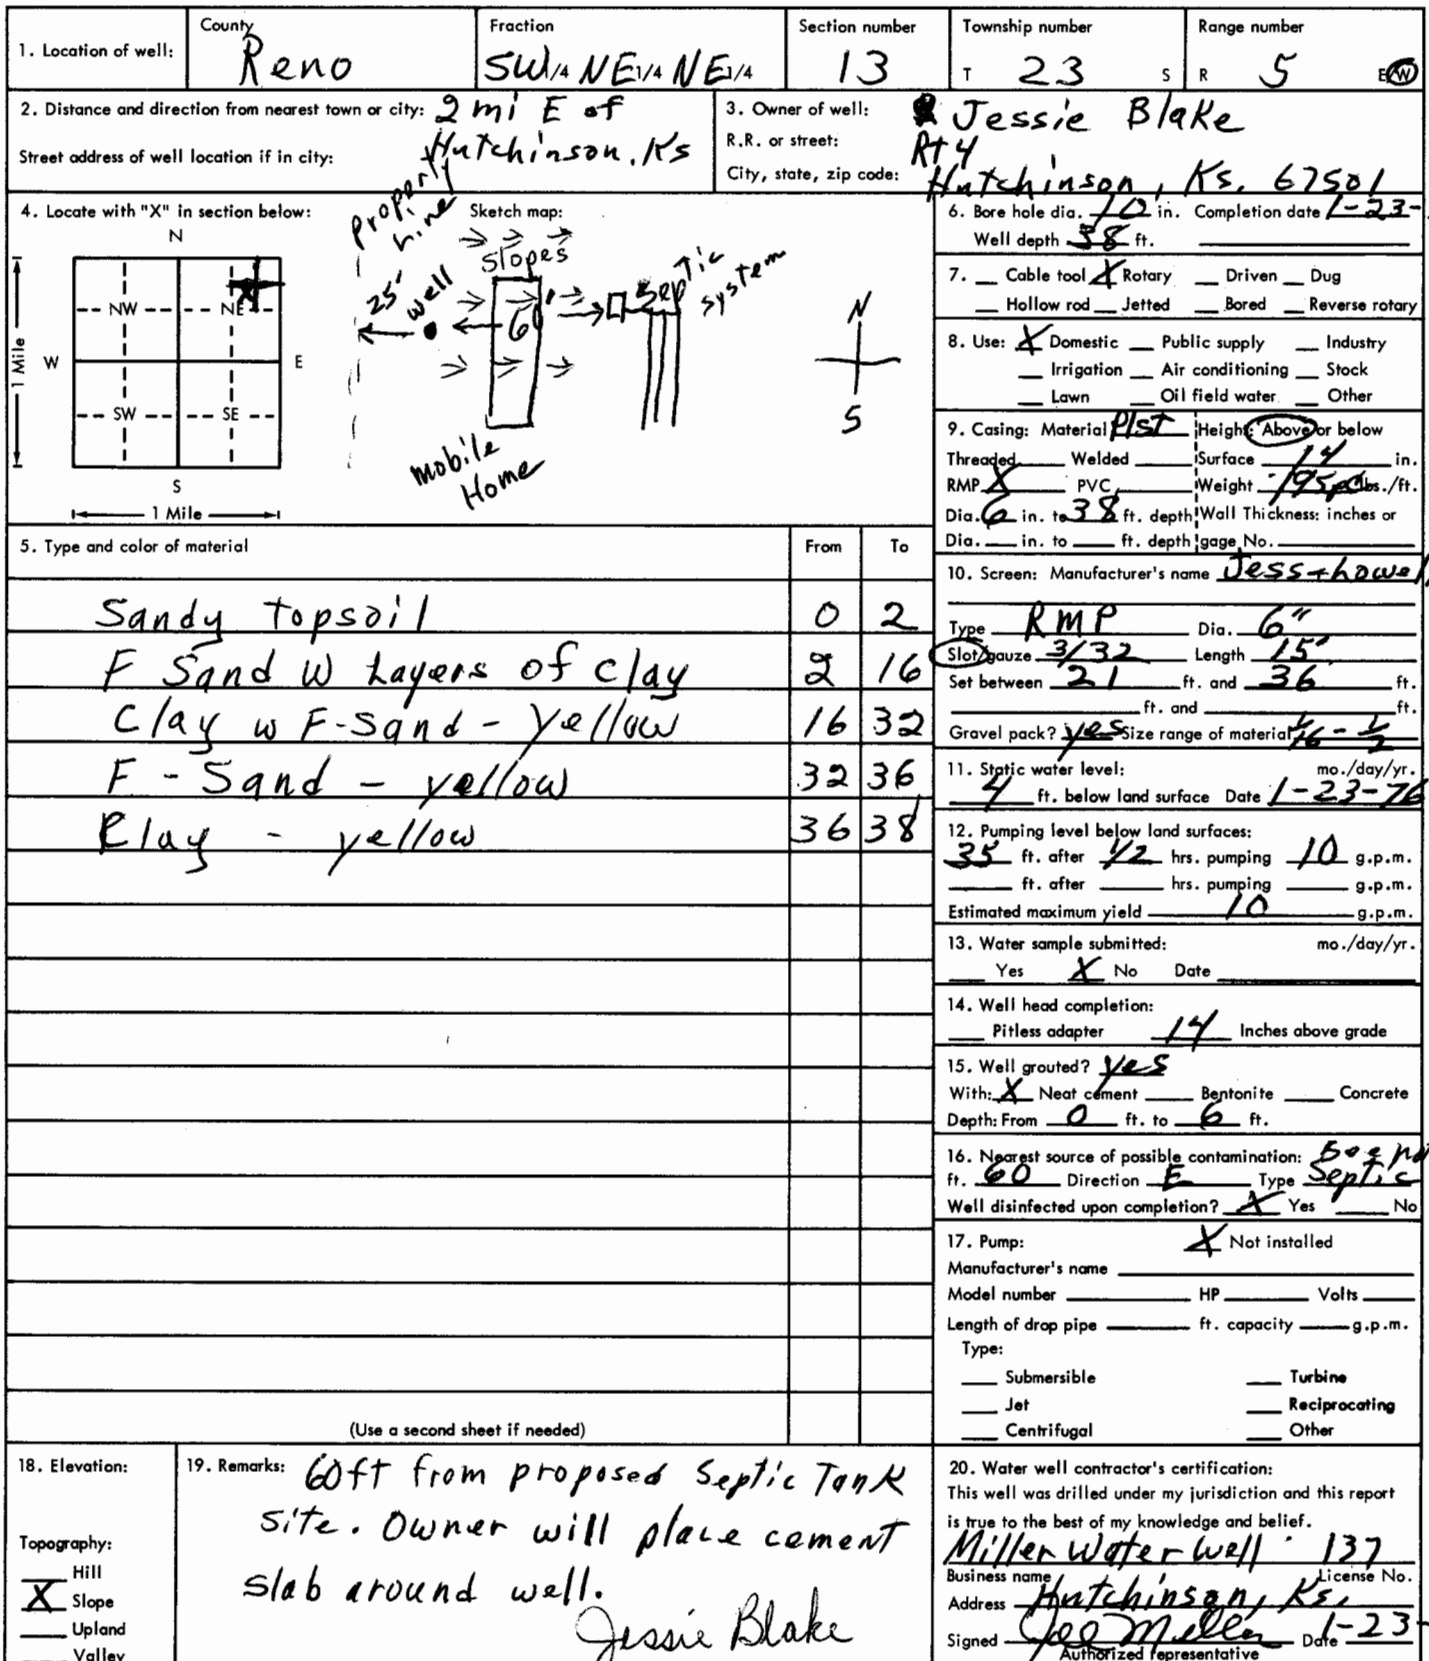 1. Location of well: County Reno Fraction SW 1/4 NE 1/4 NE 1/4 Section number 13 Township number T 23 S Range number R 5 E W
2. Distance and direction from nearest town or city: 2 mi E of
Hutchinson, Ks
Street address of well location if in city:
3. Owner of well: Jessie Blake
R.R. or street: Rt 4
City, state, zip code: Hutchinson, Ks. 67501
4. Locate with "X" in section below:
N
NW NE
W E
SW SE
S
1 Mile
1 Mile
X
Sketch map:
Property
Line
25'
well
slopes
60'
Septic
system
mobile
Home
N
S
5. Type and color of material From To
Sandy topsoil 0 2
F Sand W Layers of clay 2 16
Clay w F-Sand - yellow 16 32
F - Sand - yellow 32 36
Clay - yellow 36 38
(Use a second sheet if needed)
6. Bore hole dia. 10 in. Completion date 1-23-
Well depth 38 ft.
7. Cable tool X Rotary Driven Dug
Hollow rod Jetted Bored Reverse rotary
8. Use: X Domestic Public supply Industry
Irrigation Air conditioning Stock
Lawn Oil field water Other
9. Casing: Material Plst Height: Above or below
Threaded Welded Surface 14 in.
RMP X PVC Weight lbs./ft.
Dia. 6 in. to 38 ft. depth Wall Thickness: inches or
Dia. in. to ft. depth gage No.
10. Screen: Manufacturer's name Jess + howell
Type RMP Dia. 6"
Slot/gauze 3/32 Length 15'
Set between 21 ft. and 36 ft.
ft. and ft.
Gravel pack? yes Size range of material 1/16 - 1/2
11. Static water level: mo./day/yr.
4 ft. below land surface Date 1-23-76
12. Pumping level below land surfaces:
35 ft. after 1/2 hrs. pumping 10 g.p.m.
ft. after hrs. pumping g.p.m.
Estimated maximum yield 10 g.p.m.
13. Water sample submitted: mo./day/yr.
Yes X No Date
14. Well head completion:
Pitless adapter 14 Inches above grade
15. Well grouted? yes
With: X Neat cement Bentonite Concrete
Depth: From 0 ft. to 6 ft.
16. Nearest source of possible contamination:
ft. 60 Direction E Type Septic
Well disinfected upon completion? X Yes No
17. Pump: X Not installed
Manufacturer's name
Model number HP Volts
Length of drop pipe ft. capacity g.p.m.
Type:
Submersible Turbine
Jet Reciprocating
Centrifugal Other
18. Elevation:
Topography:
Hill
X Slope
Upland
Valley
19. Remarks: 60ft from proposed Septic Tank
site. Owner will place cement
slab around well.
Jessie Blake
20. Water well contractor's certification:
This well was drilled under my jurisdiction and this report
is true to the best of my knowledge and belief.
Miller Water Well 137
Business name License No.
Address Hutchinson, Ks.
Signed Joe Miller Date 1-23-
Authorized representative